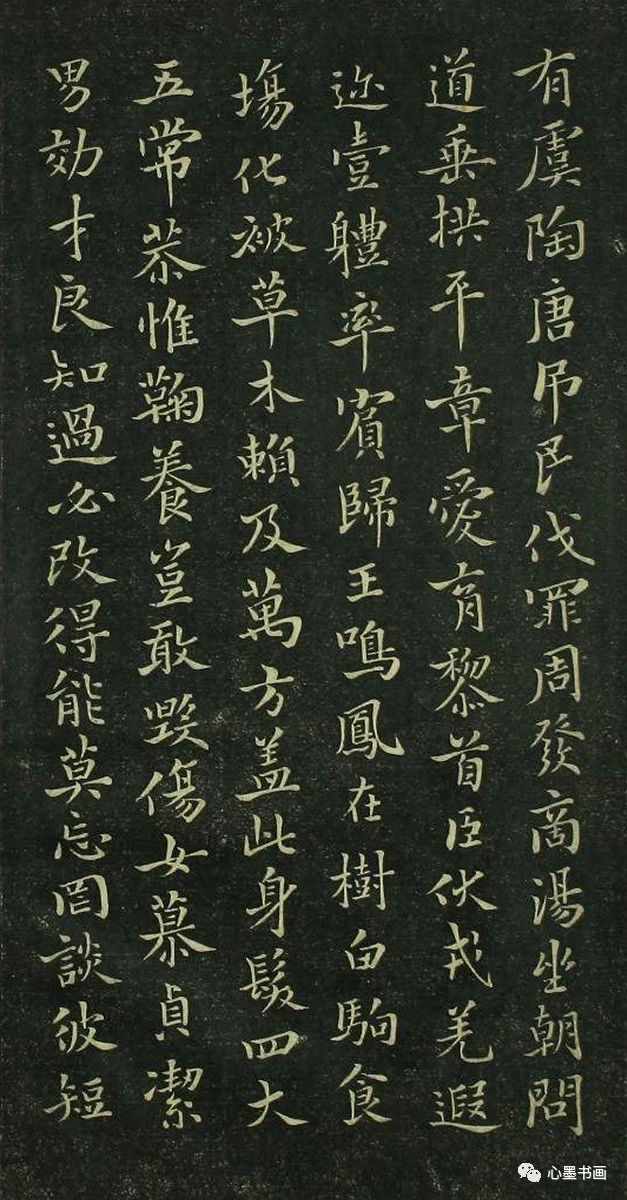 有虞陶唐吊民伐罪周發商湯坐朝問
道垂拱平章愛育黎首臣伏戎羌遐
迩壹軆率賓歸王鳴鳳在樹白駒食
塲化被草木賴及萬方盖此身髮四大
五常恭惟鞠養豈敢毀傷女慕貞潔
男効才良知過必改得能莫忘罔談彼短
心墨书画